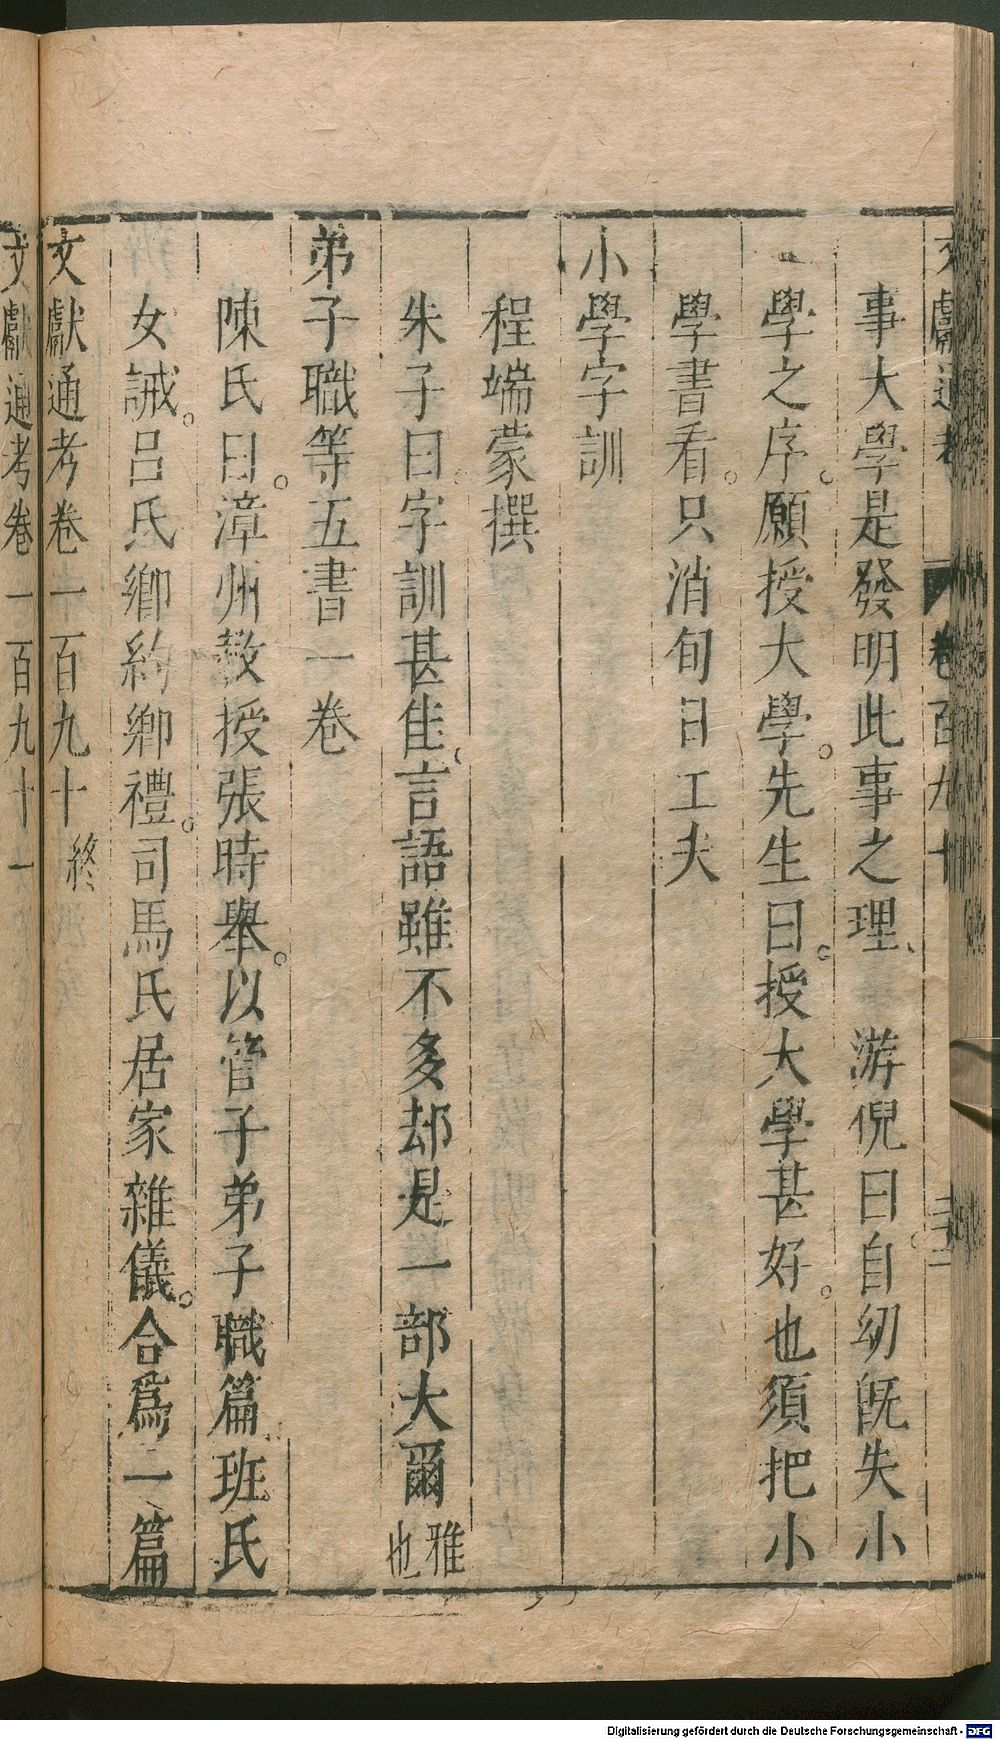 文獻通考 卷百九十
事大學是發明此事之理、 游倪曰自幼旣失小
學之序。願授大學。先生曰。授大學甚好。也須把小
學書看。只消旬日工夫
小學字訓
程端蒙撰
朱子曰字訓甚佳、言語雖不多却是一部大爾雅也
弟子職等五書一卷
陳氏曰。漳州教授張時舉。以管子弟子職篇班氏
女誡。呂氏鄉約鄉禮。司馬氏居家雜儀。合爲一篇
文獻通考卷一百九十 終
文獻通考卷一百九十一
Digitalisierung gefördert durch die Deutsche Forschungsgemeinschaft - DFG